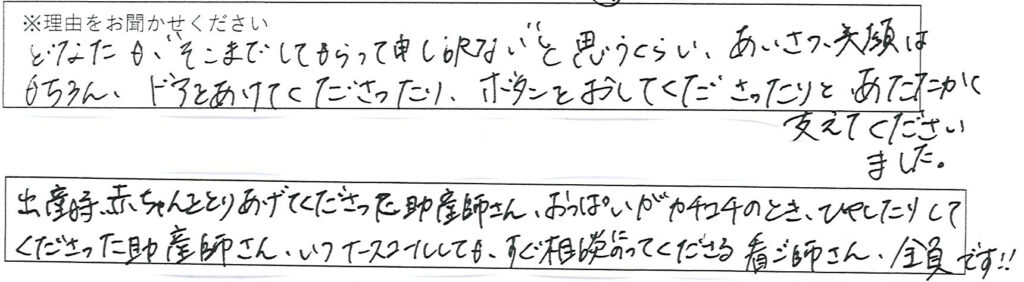 ※理由をお聞かせください
どなたも、"そこまでしてもらって申し訳ない"と思うくらい、あいさつ、笑顔は
もちろん、ドアをあけてくださったり、ボタンをおしてくださったりと、あたたかく
支えてください
ました。
出産時、赤ちゃんをとりあげてくださった助産師さん、おっぱいがカチコチのとき、ひやしたりして
くださった助産師さん、いつナースコールしても、すぐ相談にのってくださる看ご師さん、全員です!!